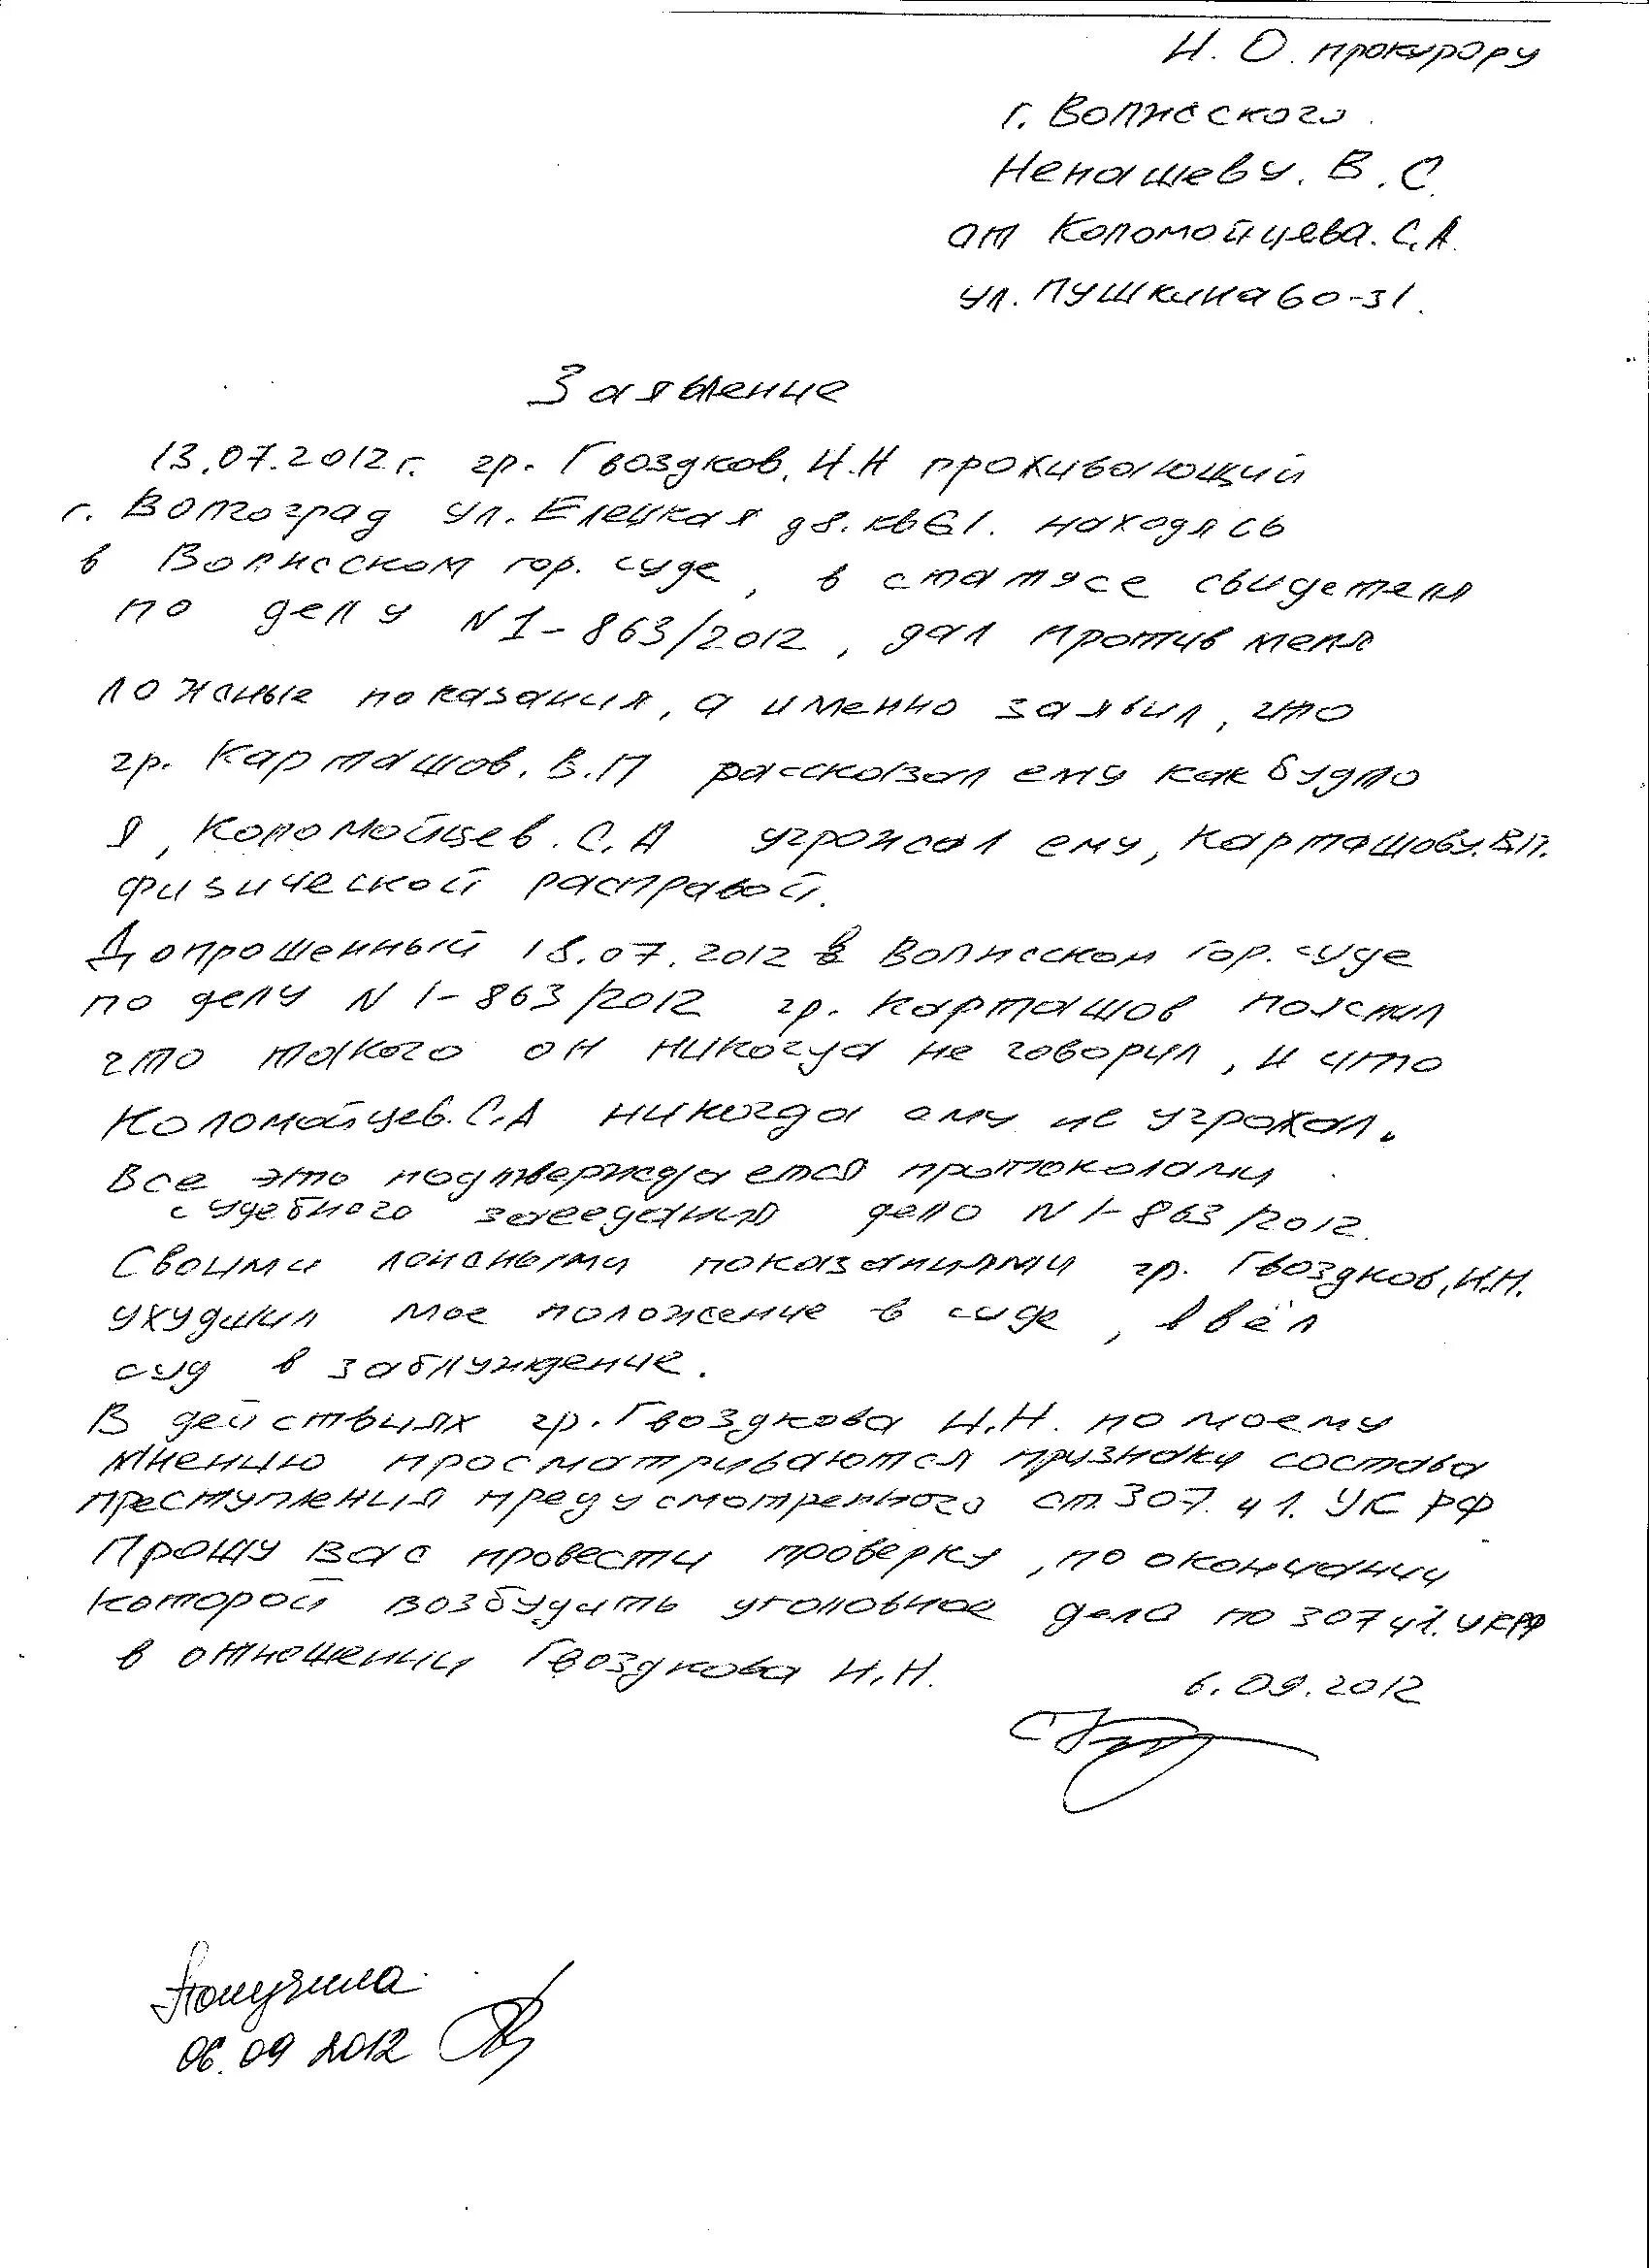 И. О. прокурору
г. Волжского.
Ненашеву. В. С.
от Коломойцева. С. А.
ул. Пушкина 60-31.
Заявление
13.07.2012 г. гр. Гвоздков. И. Н проживающий
г. Волгоград ул. Елецкая д 8. кв 61. находясь
в Волжском гор. суде, в статусе свидетеля
по делу N 1-863/2012, дал против меня
ложные показания, а именно заявил, что
гр. Карташов. В. П рассказал ему как будто
я, Коломойцев. С. А угрожал ему, Карташову. В.П.
физической расправой.
Допрошенный 18.07.2012 в Волжском гор. суде
по делу N 1-863/2012 гр. Карташов пояснил
что такого он никогда не говорил, и что
Коломойцев. С. А никогда ему не угрожал.
Все это подтверждается протоколами
судебного заседания дело N 1-863/2012.
Своими ложными показаниями гр. Гвоздков, И.Н.
ухудшил мое положение в суде, ввёл
суд в заблуждение.
В действиях гр. Гвоздкова И. Н. по моему
мнению просматриваются признаки состава
преступления предусмотренного ст. 307. ч 1. УК РФ
Прошу Вас провести проверку, по окончании
которой возбудить уголовное дело по 307 ч 1. УК РФ
в отношении Гвоздкова И. Н.
6.09.2012
Получила
06.09 2012